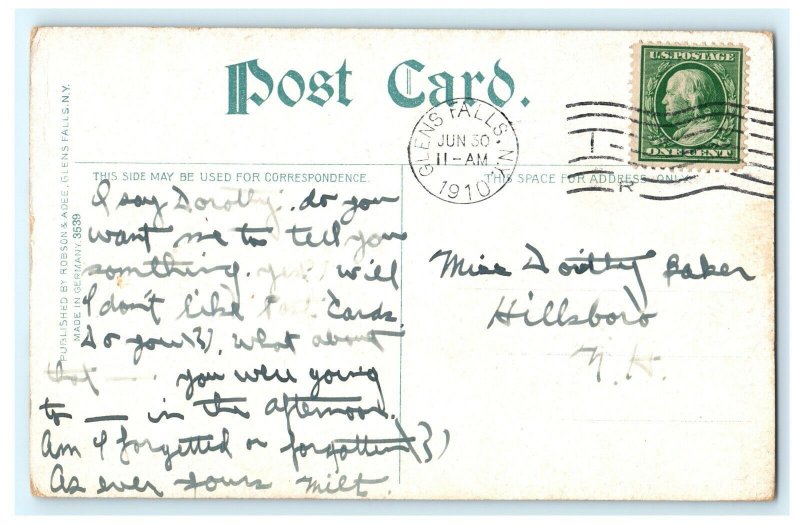 Post Card.
U.S. POSTAGE
ONE CENT
GLENS FALLS, N.Y.
JUN 30
11-AM
1910
R
THIS SIDE MAY BE USED FOR CORRESPONDENCE.
THIS SPACE FOR ADDRESS ONLY.
PUBLISHED BY ROBSON & ADEE, GLENS FALLS, N.Y.
MADE IN GERMANY 3539
I say Dorothy, do you
want me to tell you
something. yes? will
I don't like Post Cards.
Do you?). What about
that — . you were going
to — in the afternoon.
Am I forgetted or forgotten?)
As ever yours Milt.
Miss Dorothy Baker
Hillsboro
N.H.